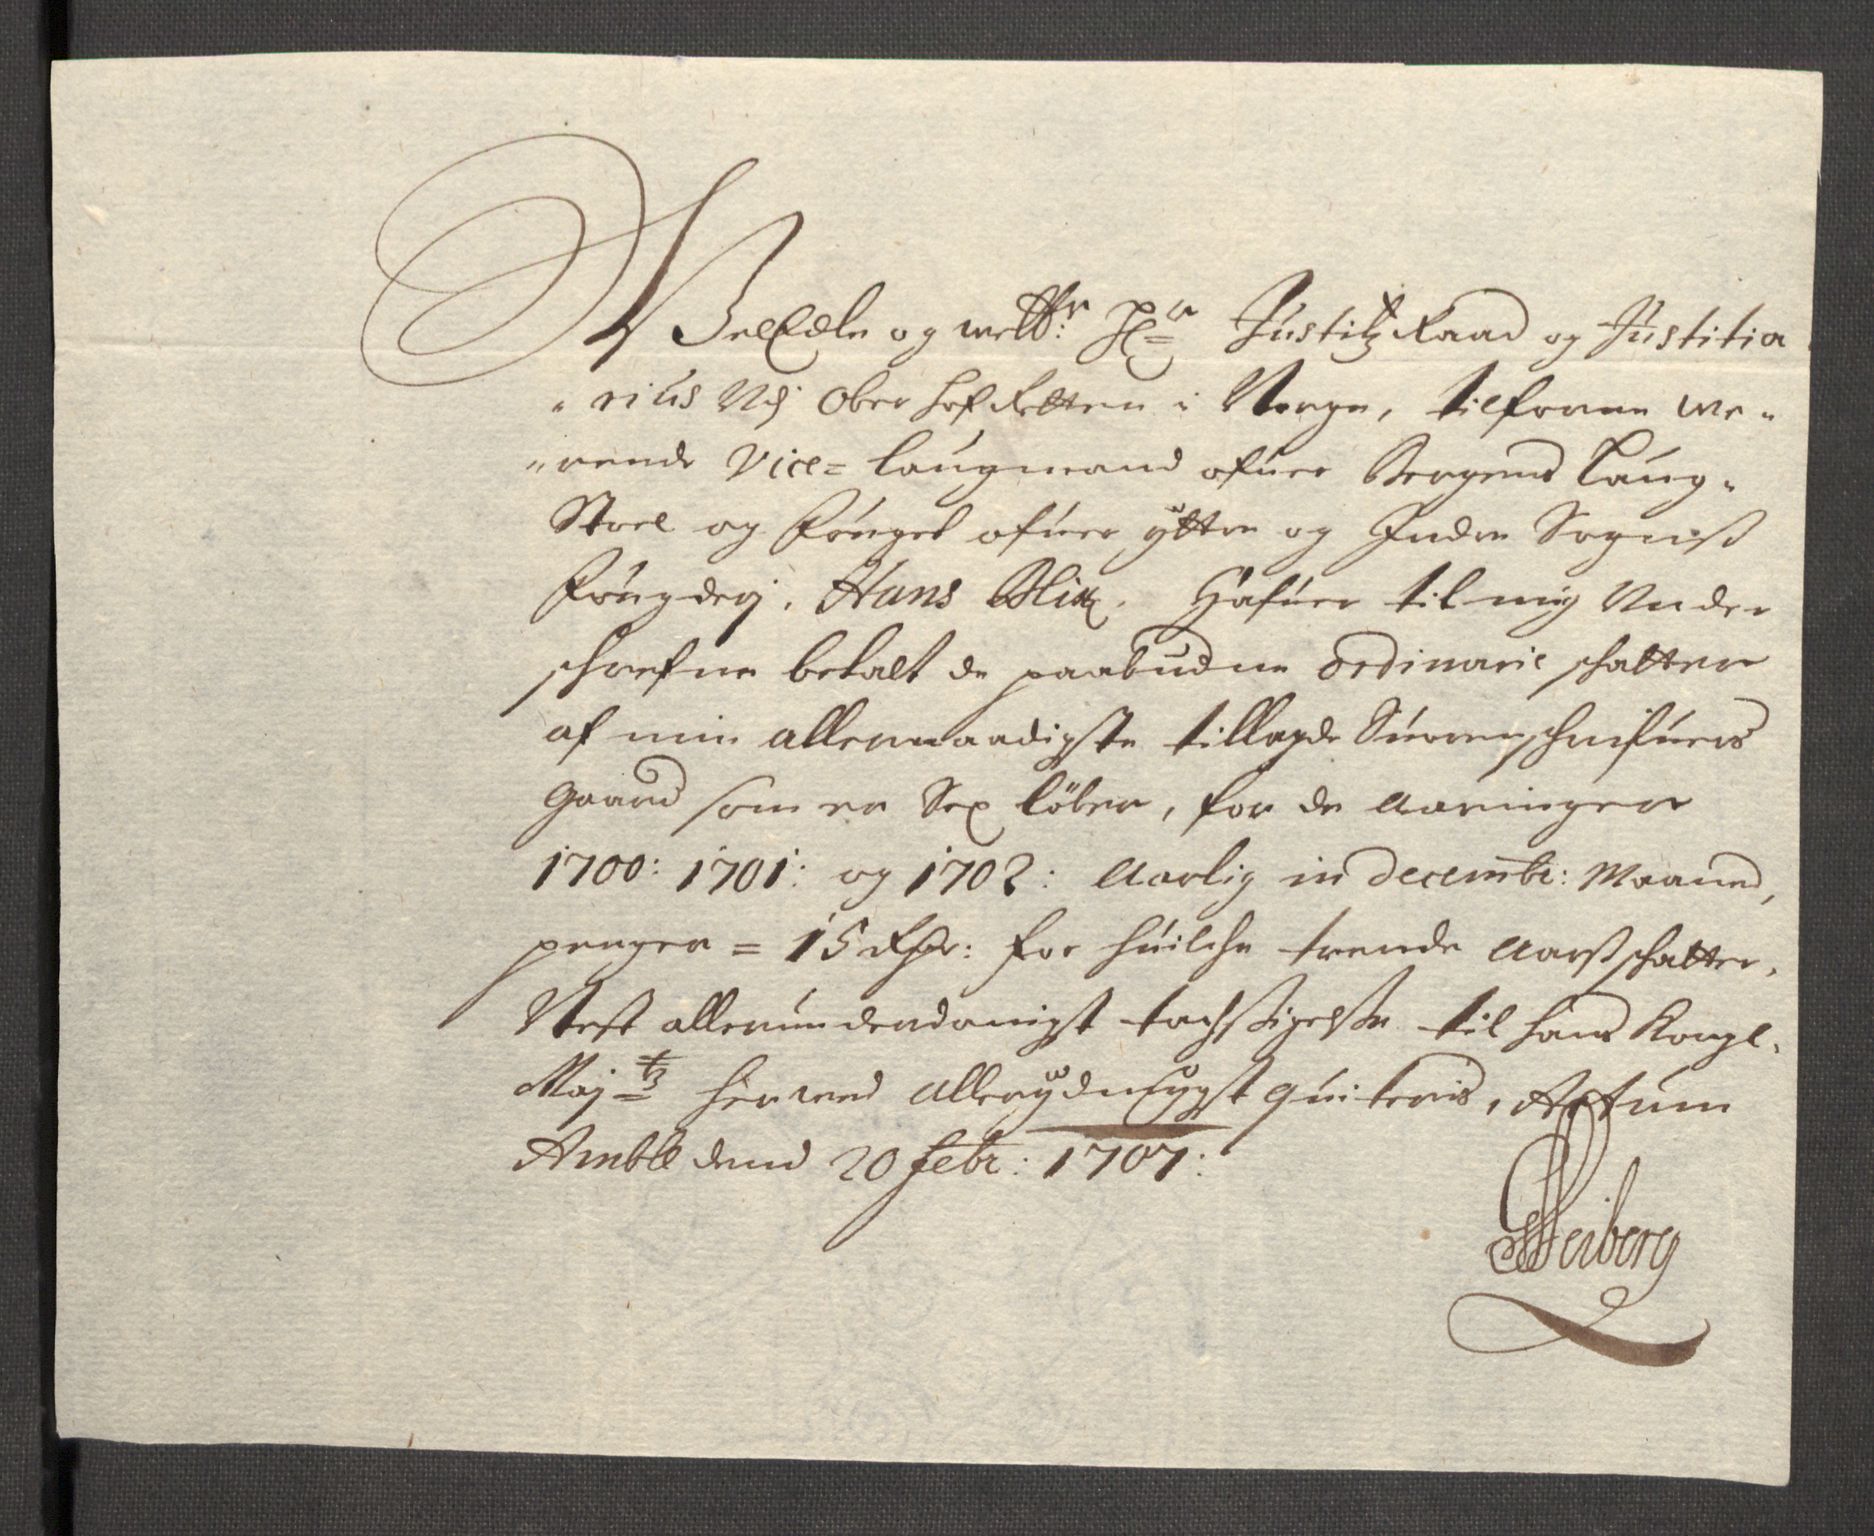 WelEdle og welb:ⁿ Hr Justitz Raad og Justitia
„rius Udj Ober Hof Retten i Norge, tilforne we„
„rende Vice= Laugmand ofuer Bergens Laug„
Stoel og Fouget ofuer ÿttre og Indre Sogniß
Fougderj, Hans Blix. Hafuer til mig Under
schrefne betalt de paabudne ordinarie schatter
af min allernaadigste tillagde Sorenschrifuers
gaard som er Sex løber, for de Aaringer
1700: 1701: og 1702: Aarlig in decembr: Maaned,
penger = 15 Rdr: for huilche trende Aarß schatter,
Nest allerunderdanigst tachsigelse til hans Kongl.
Maj tz herwed allerÿdmÿgst quiteris, Actum
Amble dend 20 Febr: 1707:
GHeiberg